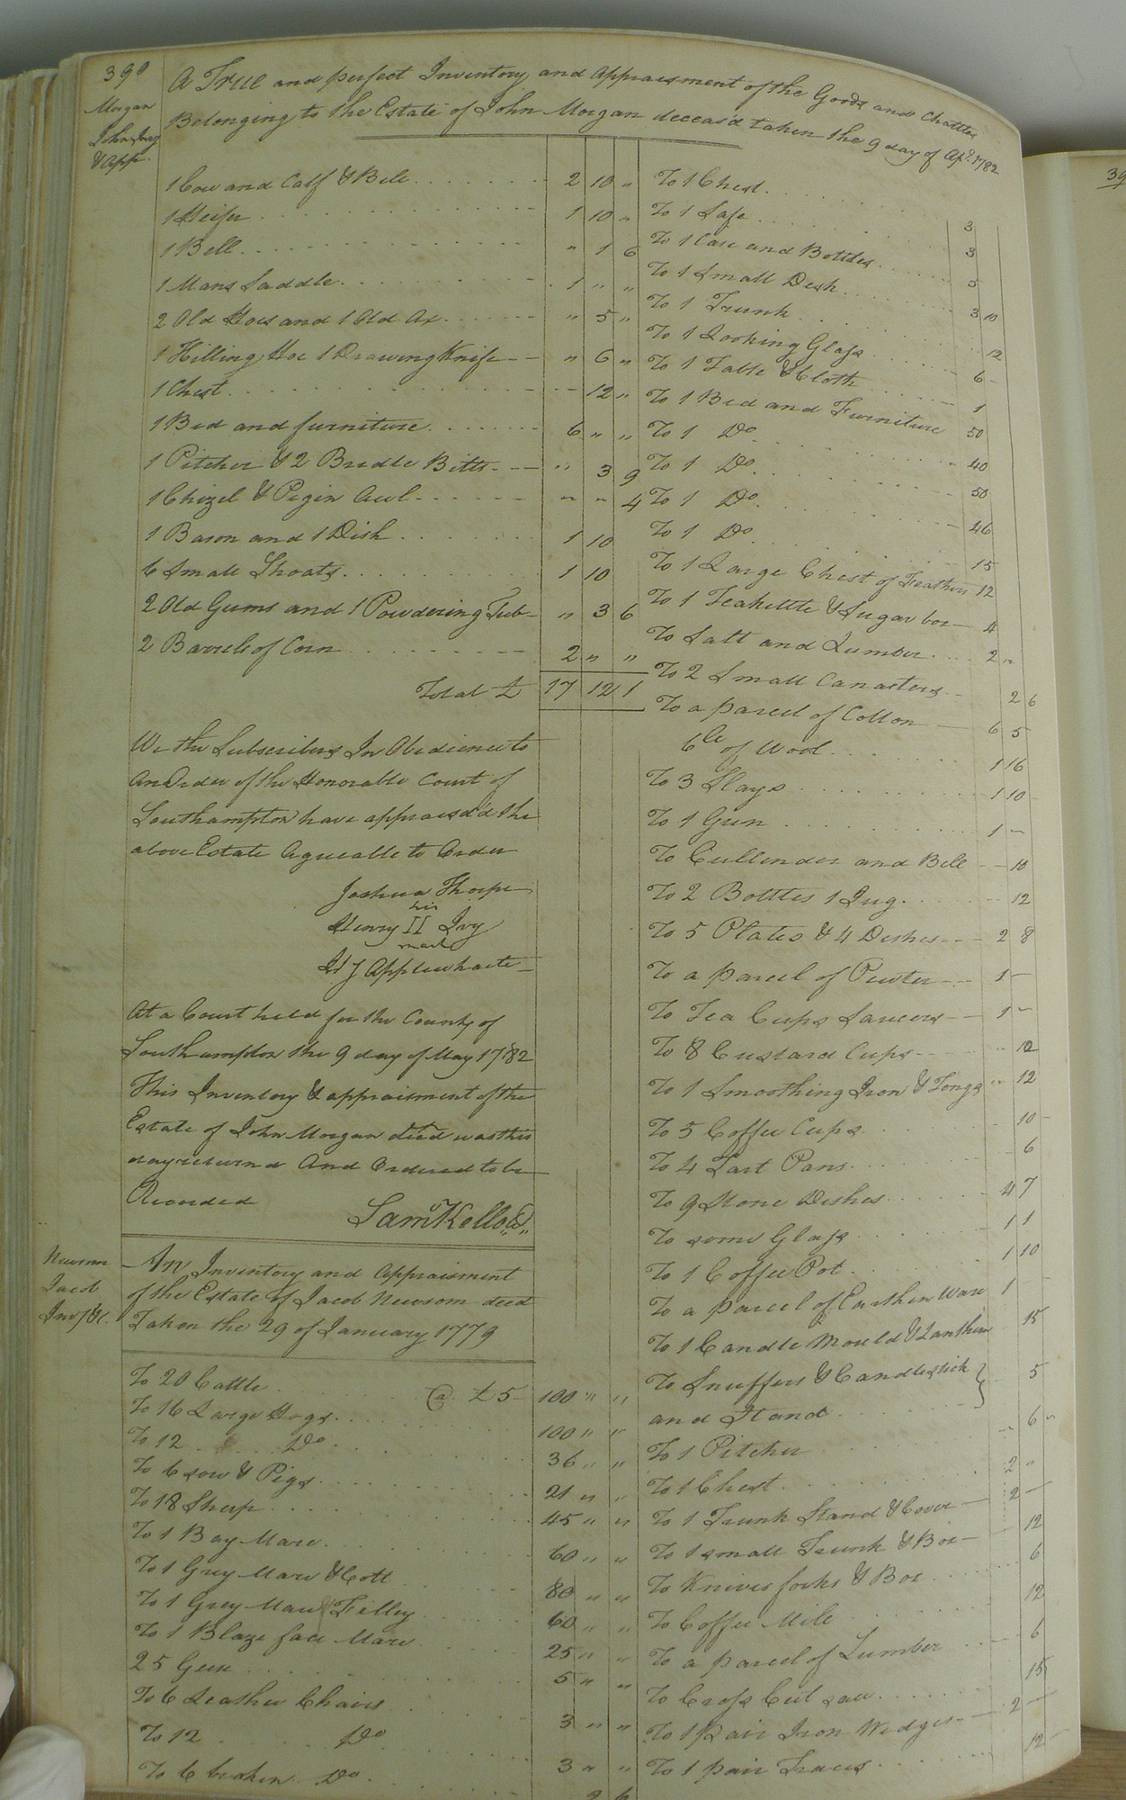 390
Morgan
John Invy
& App.
A True and perfect Inventory and Appraisment of the Goods and Chattles
Belonging to the Estate of John Morgan deceas'd taken the 9 day of Apl. 1782
1 Cow and Calf & Bell 2 10 "
1 Heifer 1 10 "
1 Bell " 1 6
1 Mans Saddle 1 " "
2 Old Hoes and 1 Old Ax " 5 "
1 Hilling Hoe 1 Drawing Knife " 6 "
1 Chest 12 "
1 Bed and furniture 6 " "
1 Pitcher & 2 Bridle Bitts " 3 9
1 Chizel & Pegin Awl " " 4
1 Bason and 1 Dish 1 10
6 Small Shoats 1 10
2 Old Gums and 1 Powdering Tub " 3 6
2 Barrels of Corn 2 " "
Total £ 17 12 1
We the Subscribers In Obedience to
An Order of the Honorable Court of
Southampton have appraisd'd the
above Estate Agreeable to Order
Joshua Thorpe
his
Henry II Ivy
mark
H J Applewhaite
At a Court held for the County of
Southampton the 9 day of May 1782
This Inventory & appraisment of the
Estate of John Morgan decd was this
day returnd And Ordered to be
Recorded
Saml Kello Cl.
Newsom
Jacob
Inv/ &c.
An Inventory and Appraisment
of the Estate of Jacob Newsom decd
Taken the 29 of January 1779
To 20 Cattle @ £5 100 " "
To 16 Large Hogs 100 " "
To 12 Do 36 " "
To 6 sow & Pigs 21 " "
To 18 Sheep 45 " "
To 1 Bay Mare 60 " "
To 1 Grey Mare & Colt 80 " "
To 1 Grey Mare Filley 60 " "
To 1 Blaze face Mare 25 " "
25 Geese 5 " "
To 6 Leather Chairs 3 " "
To 12 Do 3 " "
To 6 broken Do
To 1 Chest 3
To 1 Safe 3
To 1 Case and Bottles 5
To 1 Small Desk 3 10
To 1 Trunk 12
To 1 Looking Glass 6
To 1 Table & Cloth 1
To 1 Bed and Furniture 50
To 1 Do 40
To 1 Do 50
To 1 Do 46
To 1 Do 15
To 1 Large Chest of Feathers 12
To 1 Teakettle & Sugar box 4
To Salt and Lumber 2 "
To 2 Small Canasters 2 6
To a parcel of Cotton 6 5
6 lb of Wool 1 16
To 3 Slays 1 10
To 1 Gun 1
To Cullender and Bell 10
To 2 Bottles 1 Jug 12
To 5 Plates & 4 Dishes 2 8
To a parcel of Pewter 1
To Tea Cups Saucers 1
To 8 Custard Cups 12
To 1 Smoothing Iron & Tongs 12
To 5 Coffee Cups 10
To 4 Tart Pans 6
To 9 Stone Dishes 4 7
To some Glass 1 1
To 1 Coffee Pot 1 10
To a parcel of Earthen Ware 1
To 1 Candle Mould & Lanthern 15
To Snuffers & Candlestick
and Stand 5
To 1 Pitcher 6
To 1 Chest 2
To 1 Trunk Stand & Cover 2
To 1 small Trunk & Box 12
To Knives forks & Box 6
To Coffee Mill 12
To a parcel of Lumber 6
To Cross Cut saw 15
To 1 Pair Iron Wedges 2
To 1 pair Traces 12